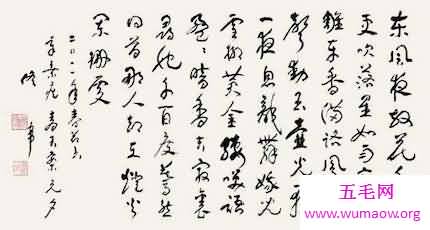 东风夜放花千
更吹落星如雨
雕车香满路凤
声动玉壶光转
一夜鱼龙舞蛾儿
雪柳黄金缕笑语
盈〻暗香去众里
寻他千百度蓦然
回首那人却在灯火
阑珊处
二〇一一年春节书
辛弃疾青玉案元夕
五毛网
www.wumaow.org